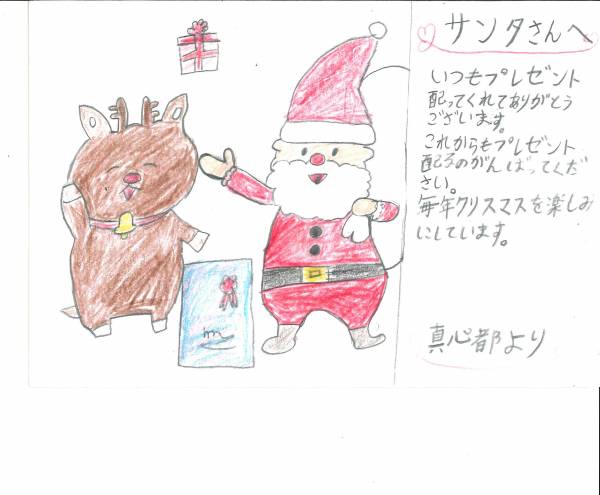 サンタさんへ
いつもプレゼント
配ってくれてありがとう
ございます。
これからもプレゼント
配るのがんばってくだ
さい。
毎年クリスマスを楽しみ
にしています。
真心都より